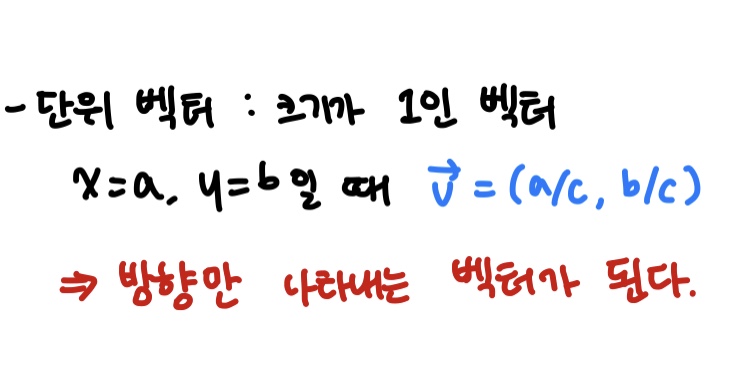 - 단위 벡터 : 크기가 1인 벡터
x=a, y=b일 때 v⃗ = (a/c, b/c)
⇒ 방향만 나타내는 벡터가 된다.